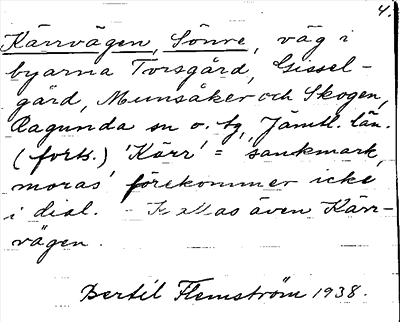 4.
Kärrvägen, Sönre, väg i
byarna Torsgård, Gissel-
gård, Munsåker och Skogen,
Ragunda sn o. tg, Jämtl. län.
(forts.) 'Kärr' = sankmark,
moras' förekommer icke
i dial. - Kallas även Kärr-
vägen.
Bertil Flemström 1938.